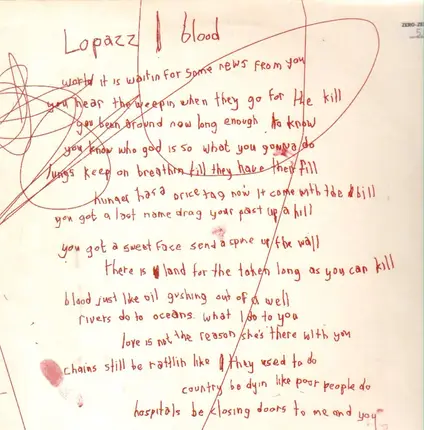 Lopazz | blood
ZERO-ZE
world it is waitin for some news from you
you hear the weepin when they go for the kill
you been around now long enough to know
you know who god is so what you gonna do
lungs keep on breathin till they have their fill
hunger has a price tag now it come with the bill
you got a last name drag your past up a hill
you got a sweet face send a spine up the wall
there is land for the taken long as you can kill
blood just like oil gushing out of a well
rivers do to oceans what I do to you
love is not the reason she's there with you
chains still be rattlin like they used to do
country be dyin like poor people do
hospitals be closing doors to me and you